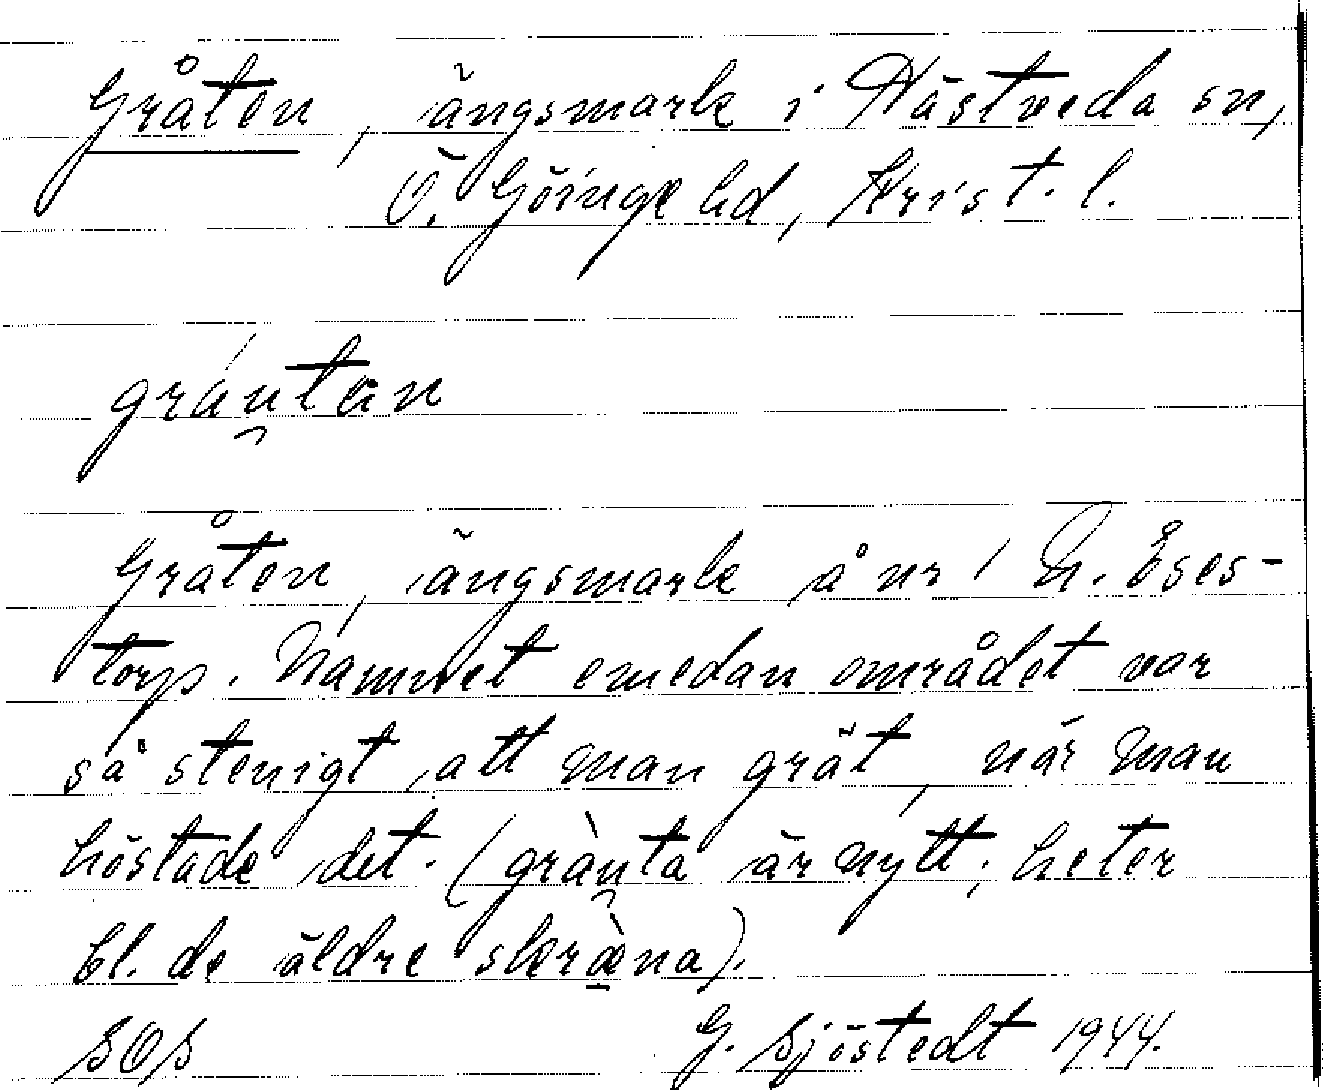 Gråten, ängsmark i Hästveda sn,
Ö. Göinge hd, Krist. l.
gráu̯tän
Gråten, ängsmark å nr 1 L. Åses-
torp. Namnet emedan området var
så stenigt, att man grät, när man
höstade det. (gràu̯ta är nytt; heter
bl. de äldre skræ̀na).
SOS G. Sjöstedt 1944.